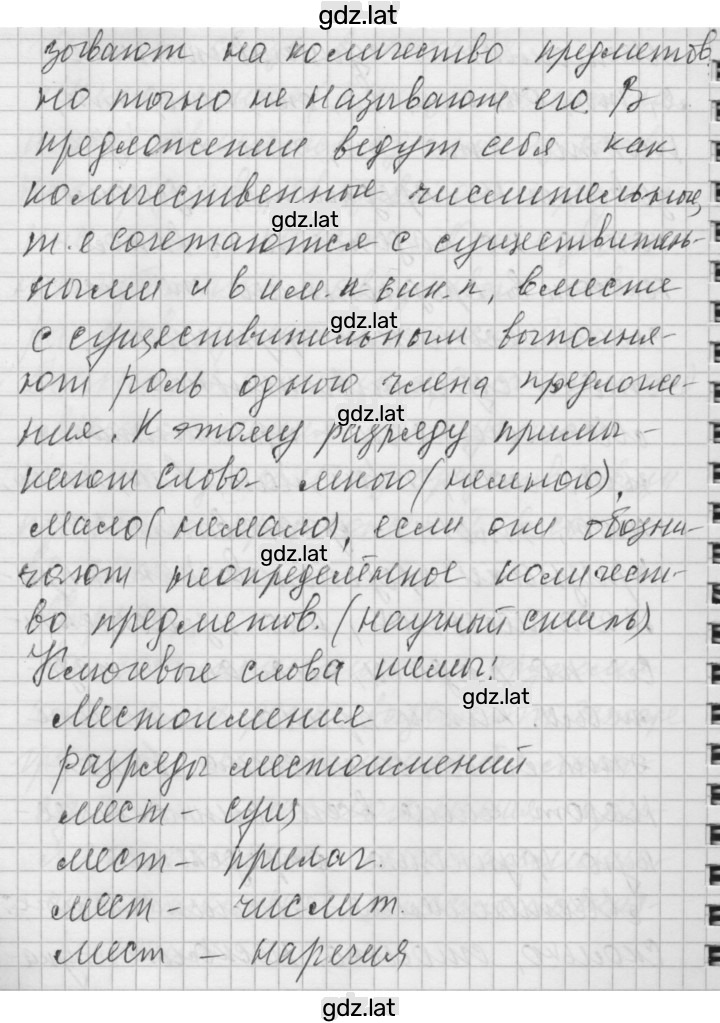 gdz.lat
зывают на количество предметов,
но точно не называют его. В
предложении ведут себя как
количественные числительные,
gdz.lat
т.е сочетаются с существитель-
ными и в им.п вин.п, вместе
gdz.lat
с существительным выполня-
ют роль одного члена предложе-
gdz.lat
ния. К этому разряду примы-
кают слова много (немного),
мало (немало), если они обозна-
gdz.lat
чают неопределённое количест-
во предметов. (научный стиль)
Ключевые слова темы:
gdz.lat
Местоимение
разряды местоимений
мест - сущ
мест - прилаг.
мест - числит.
мест - наречия
gdz.lat